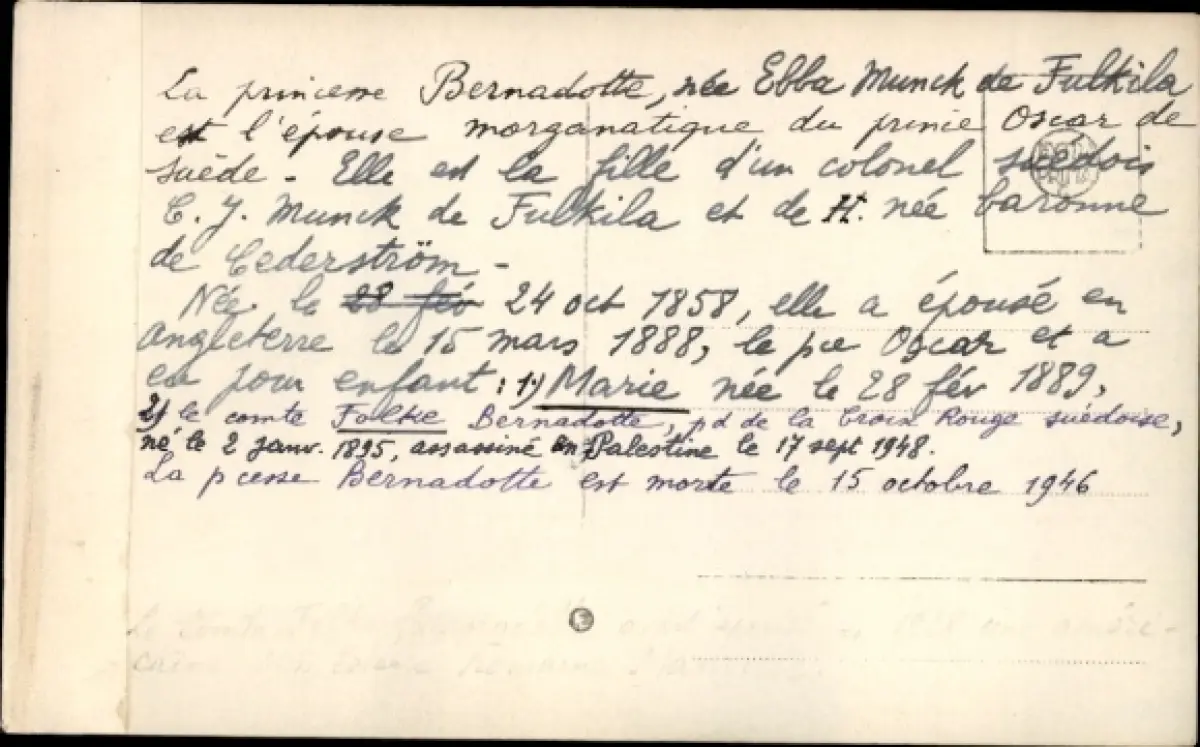 La princesse Bernadotte, née Ebba Munck de Fulkila
est l'épouse morganatique du prince Oscar de
suède - Elle est la fille d'un colonel suédois
C. J. Munck de Fulkila et de H. née baronne
de Cederström -
Née le 28 fév 24 oct 1858, elle a épousé en
Angleterre le 15 mars 1888, le pce Oscar et a
eu pour enfant : 1) Marie née le 28 fév 1889,
2) le comte Folke Bernadotte, pd de la Croix Rouge suédoise,
né le 2 janv. 1895, assassiné en Palestine le 17 sept 1948.
La pcesse Bernadotte est morte le 15 octobre 1946
Le comte Folke 1928